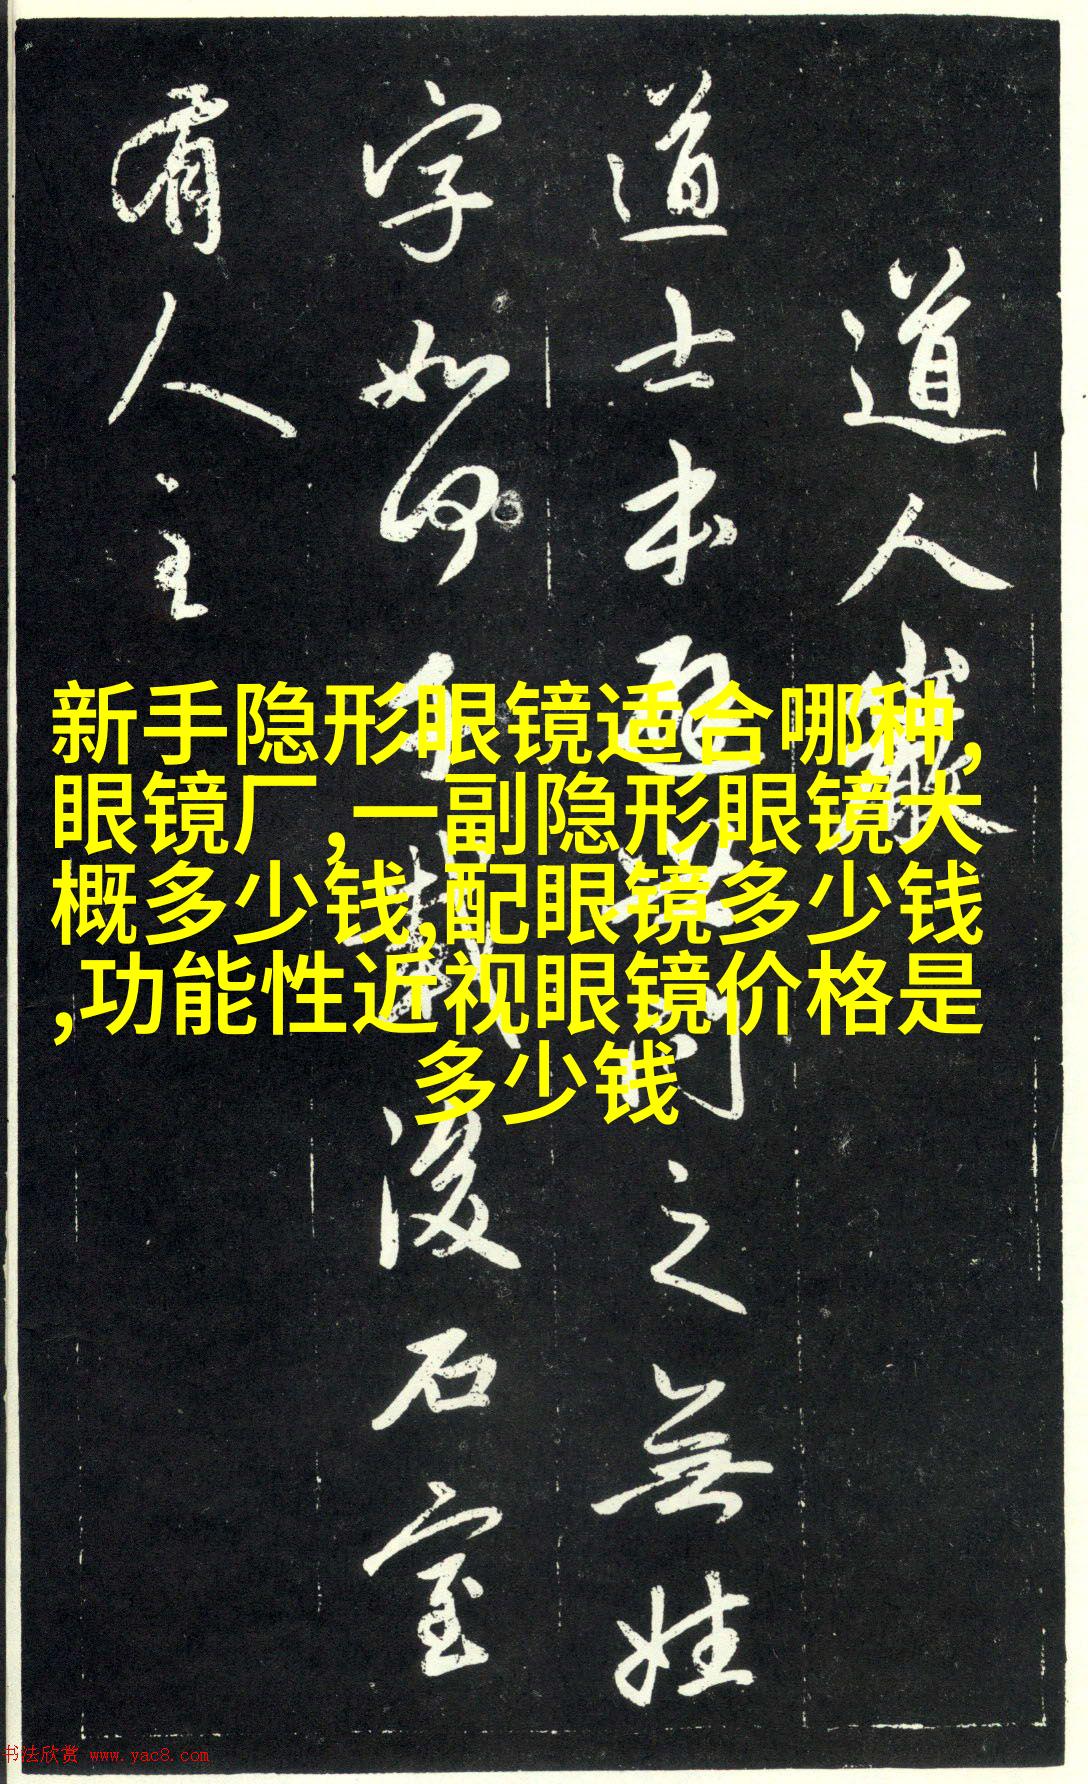 道人巖
道士本之無姓
字如何後石室
有人主
新手隐形眼镜适合哪种,
眼镜厂,一副隐形眼镜大
概多少钱,配眼镜多少钱
,功能性近视眼镜价格是
多少钱
书法欣赏 www.yac8.com